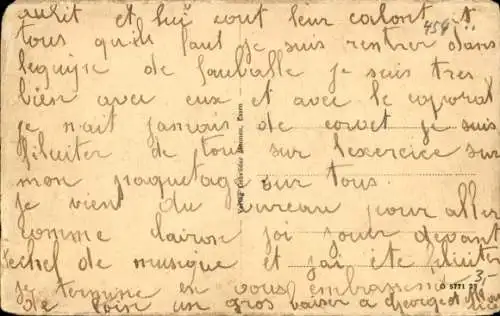 et lui tout leur
tous qu'il faut je suis rentrer dans
lequipe de je suis tres
bien avec eux et avec le caporal
je n'ait jamais de corvet je suis
filiciter de tous sur lexercice sur
mon paquetage sur tous.
je vient du bureau pour aller
comme clairon joi jouer devant
lechel de musique et jai ete filiciter
je termine en vous embrassent
de loin un gros baiser a
459
3,-
O 5771 25
Verlag Gebrüder